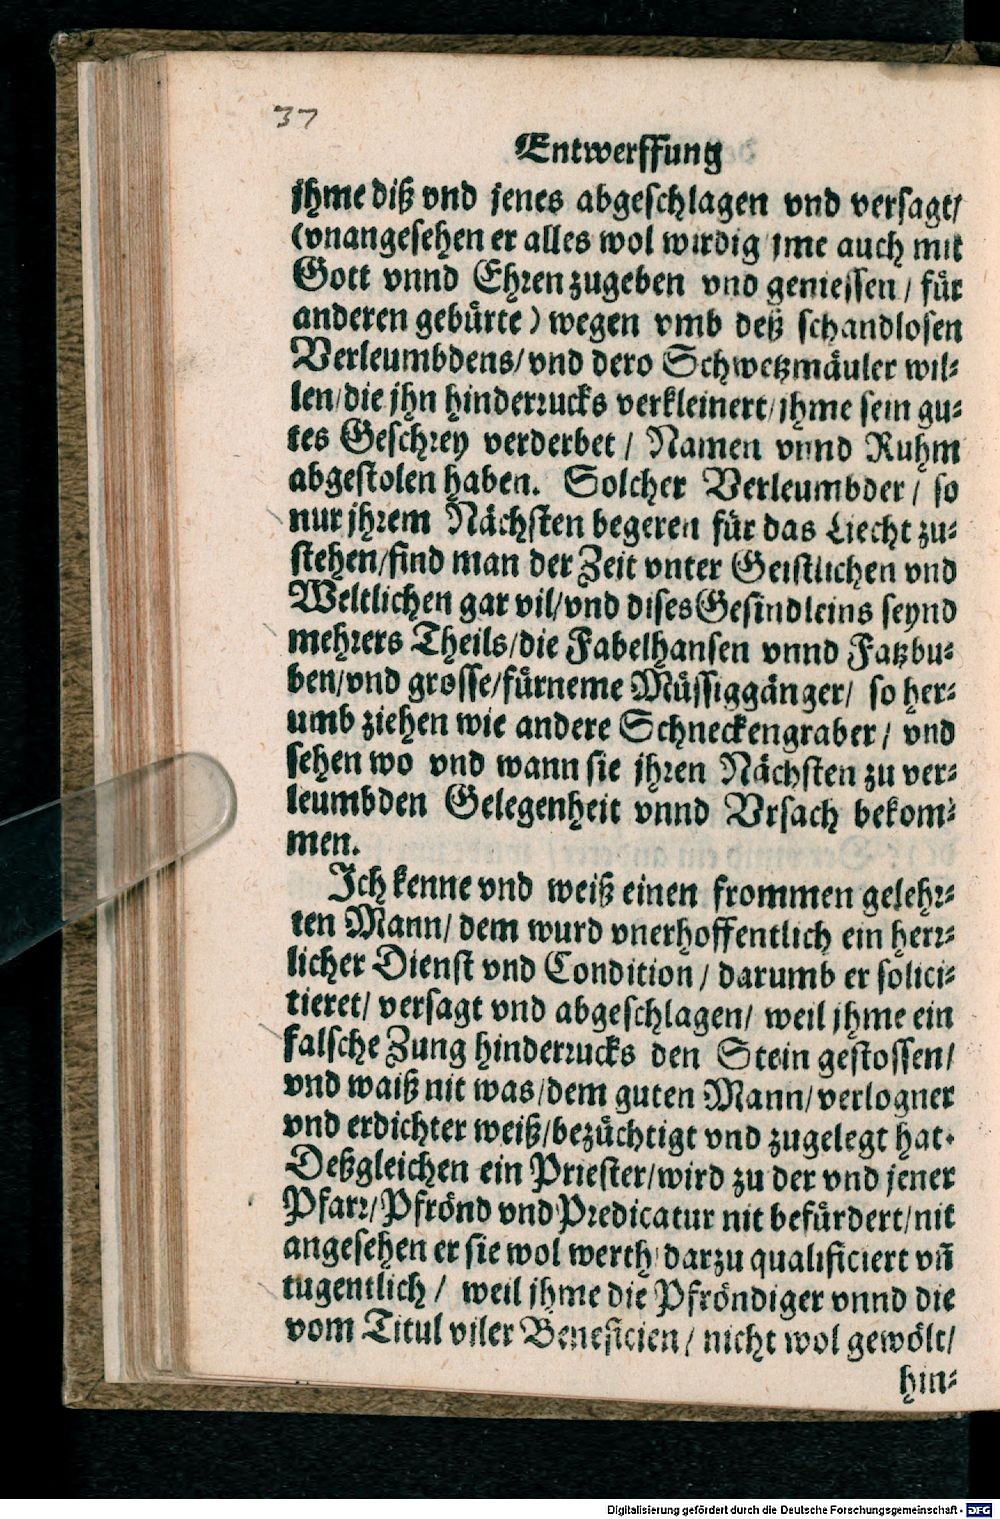 37
Entwerffung
jhme diß vnd jenes abgeschlagen vnd versagt/
(vnangesehen er alles wol wirdig jme auch mit
Gott vnnd Ehren zugeben vnd geniessen / für
anderen gebürte) wegen vmb deß schandlosen
Verleumbdens/ vnd dero Schwetzmäuler wil-
len/ die jhn hinderrucks verkleinert/ jhme sein gu-
tes Geschrey verderbet / Namen vnnd Ruhm
abgestolen haben. Solcher Verleumbder / so
nur jhrem Nächsten begeren für das Liecht zu-
stehen/ find man der Zeit vnter Geistlichen vnd
Weltlichen gar vil/ vnd dises Gesindleins seynd
mehrers Theils/ die Fabelhansen vnnd Fatzbu-
ben/ vnd grosse/ fürneme Müssiggänger/ so her-
umb ziehen wie andere Schneckengraber / vnd
sehen wo vnd wann sie jhren Nächsten zu ver-
leumbden Gelegenheit vnnd Vrsach bekom-
men.
Ich kenne vnd weiß einen frommen gelehr-
ten Mann/ dem wurd vnerhoffentlich ein herr-
licher Dienst vnd Condition / darumb er solici-
tieret/ versagt vnd abgeschlagen/ weil jhme ein
falsche Zung hinderrucks den Stein gestossen/
vnd waiß nit was/ dem guten Mann/ verlogner
vnd erdichter weiß/ bezüchtigt vnd zugelegt hat.
Deßgleichen ein Priester/ wird zu der vnd jener
Pfarr/ Pfrönd vnd Predicatur nit befürdert/ nit
angesehen er sie wol werth/ darzu qualificiert vñ
tugentlich / weil jhme die Pfröndiger vnnd die
vom Titul viler Beneficien / nicht wol gewölt/
hin-
Digitalisierung gefördert durch die Deutsche Forschungsgemeinschaft - DFG